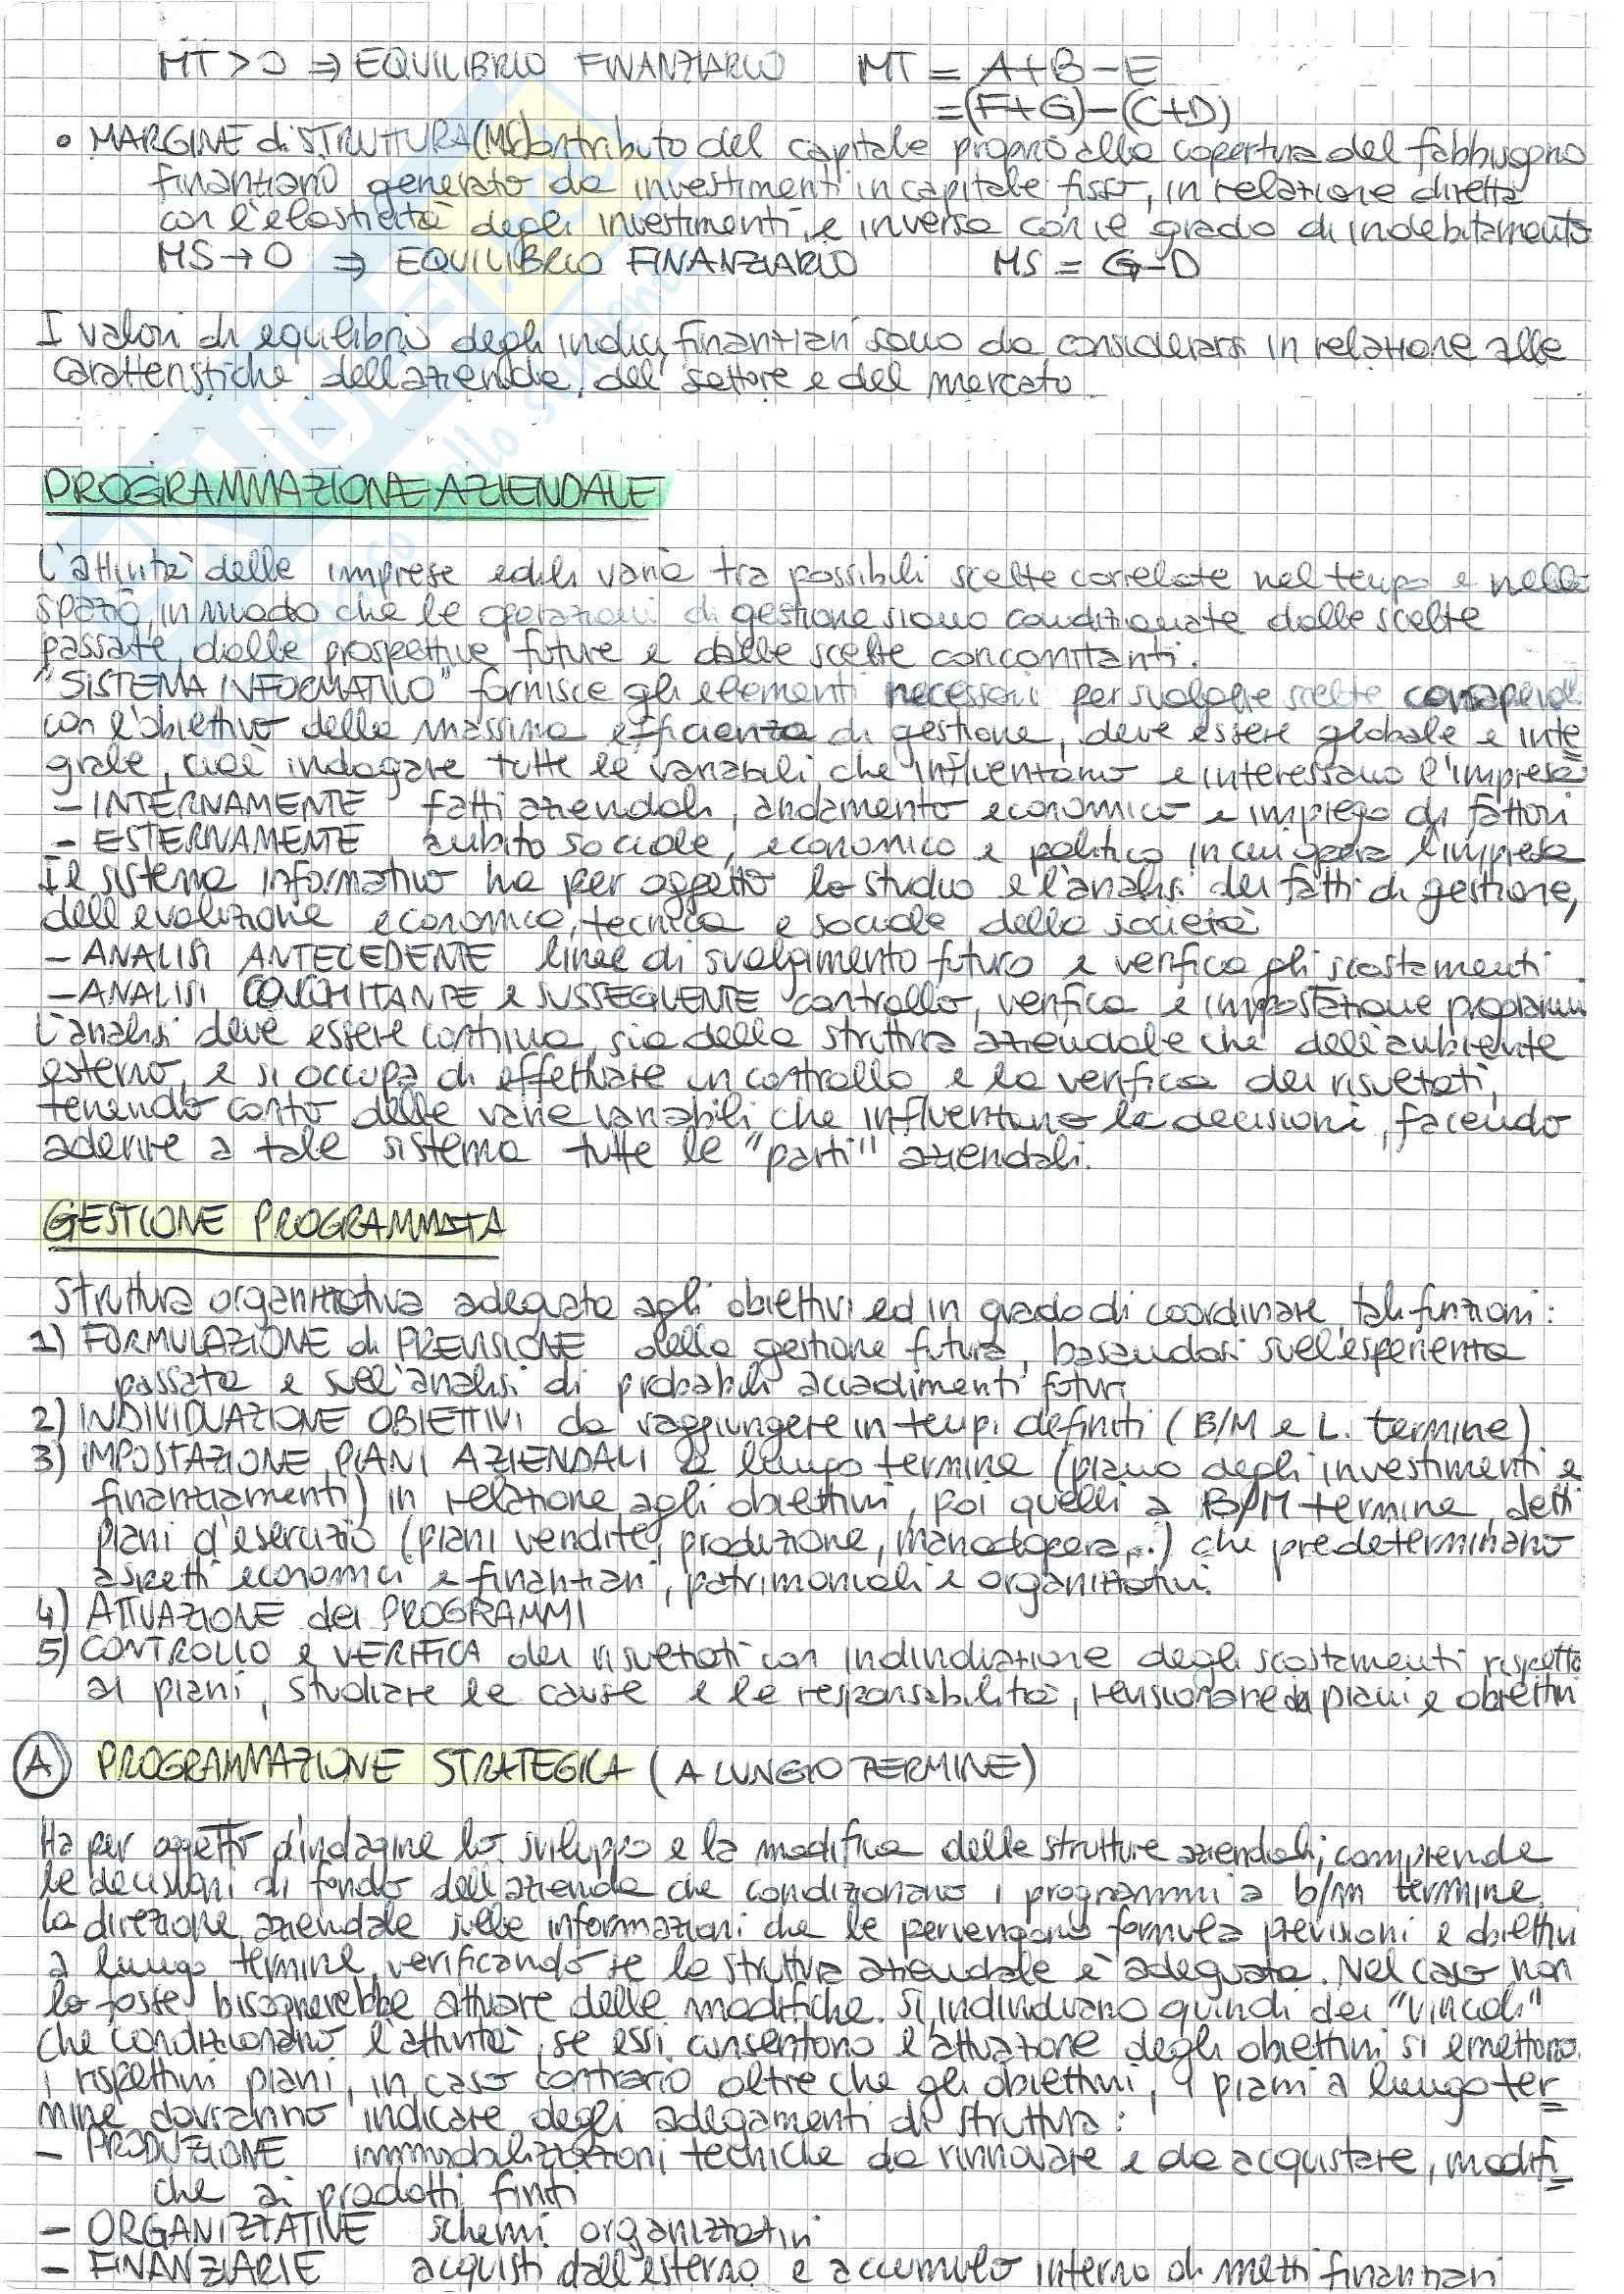 MT > 0 ⇒ EQUILIBRIO FINANZIARIO MT = A+B-E
=(F+G)-(C+D)
• MARGINE di STRUTTURA (MS) contributo del capitale proprio alla copertura del fabbisogno
finanziario generato da investimenti in capitale fisso, in relazione diretta
con l'elasticità degli investimenti, e inversa con il grado di indebitamento
MS → 0 ⇒ EQUILIBRIO FINANZIARIO MS = G-D
I valori di equilibrio degli indici finanziari sono da considerarsi in relazione alle
caratteristiche dell'azienda, del settore e del mercato.
PROGRAMMAZIONE AZIENDALE
L'attività delle imprese edili varia tra possibili scelte correlate nel tempo e nello
spazio, in modo che le operazioni di gestione siano condizionate dalle scelte
passate, dalle prospettive future e dalle scelte concomitanti.
"SISTEMA INFORMATIVO" fornisce gli elementi necessari per svolgere scelte consapevoli
con l'obiettivo della massima efficienza di gestione, deve essere globale e inte
grale, cioè indagare tutte le variabili che influenzano e interessano l'impresa:
- INTERNAMENTE fatti aziendali, andamento economico e impiego di fattori
- ESTERNAMENTE ambito sociale, economico e politico in cui opera l'impresa
Il sistema informativo ha per oggetto lo studio e l'analisi dei fatti di gestione,
dell'evoluzione economica, tecnica e sociale della società
- ANALISI ANTECEDENTE linee di svolgimento futuro e verifica gli scostamenti
- ANALISI CONCOMITANTE e SUSSEGUENTE controllo, verifica e impostazione programmi
L'analisi deve essere continua, sia della struttura aziendale che dell'ambiente
esterno, e si occupa di effettuare un controllo e la verifica dei risultati,
tenendo conto delle varie variabili che influenzano le decisioni, facendo
aderire a tale sistema tutte le "parti" aziendali.
GESTIONE PROGRAMMATA
Struttura organizzativa adeguata agli obiettivi ed in grado di coordinare tali funzioni:
1) FORMULAZIONE di PREVISIONE della gestione futura, basandosi sull'esperienza
passata e sull'analisi di probabili accadimenti futuri
2) INDIVIDUAZIONE OBIETTIVI da raggiungere in tempi definiti (B/M e L. termine)
3) IMPOSTAZIONE PIANI AZIENDALI a lungo termine (piano degli investimenti e
finanziamenti) in relazione agli obiettivi, poi quelli a B/M termine, detti
piani d'esercizio (piani vendite, produzione, manodopera,..) che predeterminano
aspetti economici e finanziari, patrimoniali e organizzativi.
4) ATTUAZIONE dei PROGRAMMI
5) CONTROLLO e VERIFICA dei risultati con individuazione degli scostamenti rispetto
ai piani, studiare le cause e le responsabilità, revisionare dei piani e obiettivi
(A) PROGRAMMAZIONE STRATEGICA (A LUNGO TERMINE)
Ha per oggetto d'indagine lo sviluppo e la modifica delle strutture aziendali, comprende
le decisioni di fondo dell'azienda che condizionano i programmi a b/m termine.
La direzione aziendale sulle informazioni che le pervengono formula previsioni e obiettivi
a lungo termine, verificando se la struttura aziendale è adeguata. Nel caso non
lo fosse bisognerebbe attuare delle modifiche. Si individuano quindi dei "vincoli"
che condizionano l'attività, se essi consentono l'attuazione degli obiettivi si emettono
i rispettivi piani, in caso contrario oltre che gli obiettivi, i piani a lungo ter
mine dovranno indicare degli adeguamenti di struttura:
- PRODUZIONE immobilizzazioni tecniche da rinnovare e da acquistare, modifi
che ai prodotti finiti
- ORGANIZZATIVE schemi organizzativi
- FINANZIARIE acquisti dall'esterno e accumulo interno di mezzi finanziari